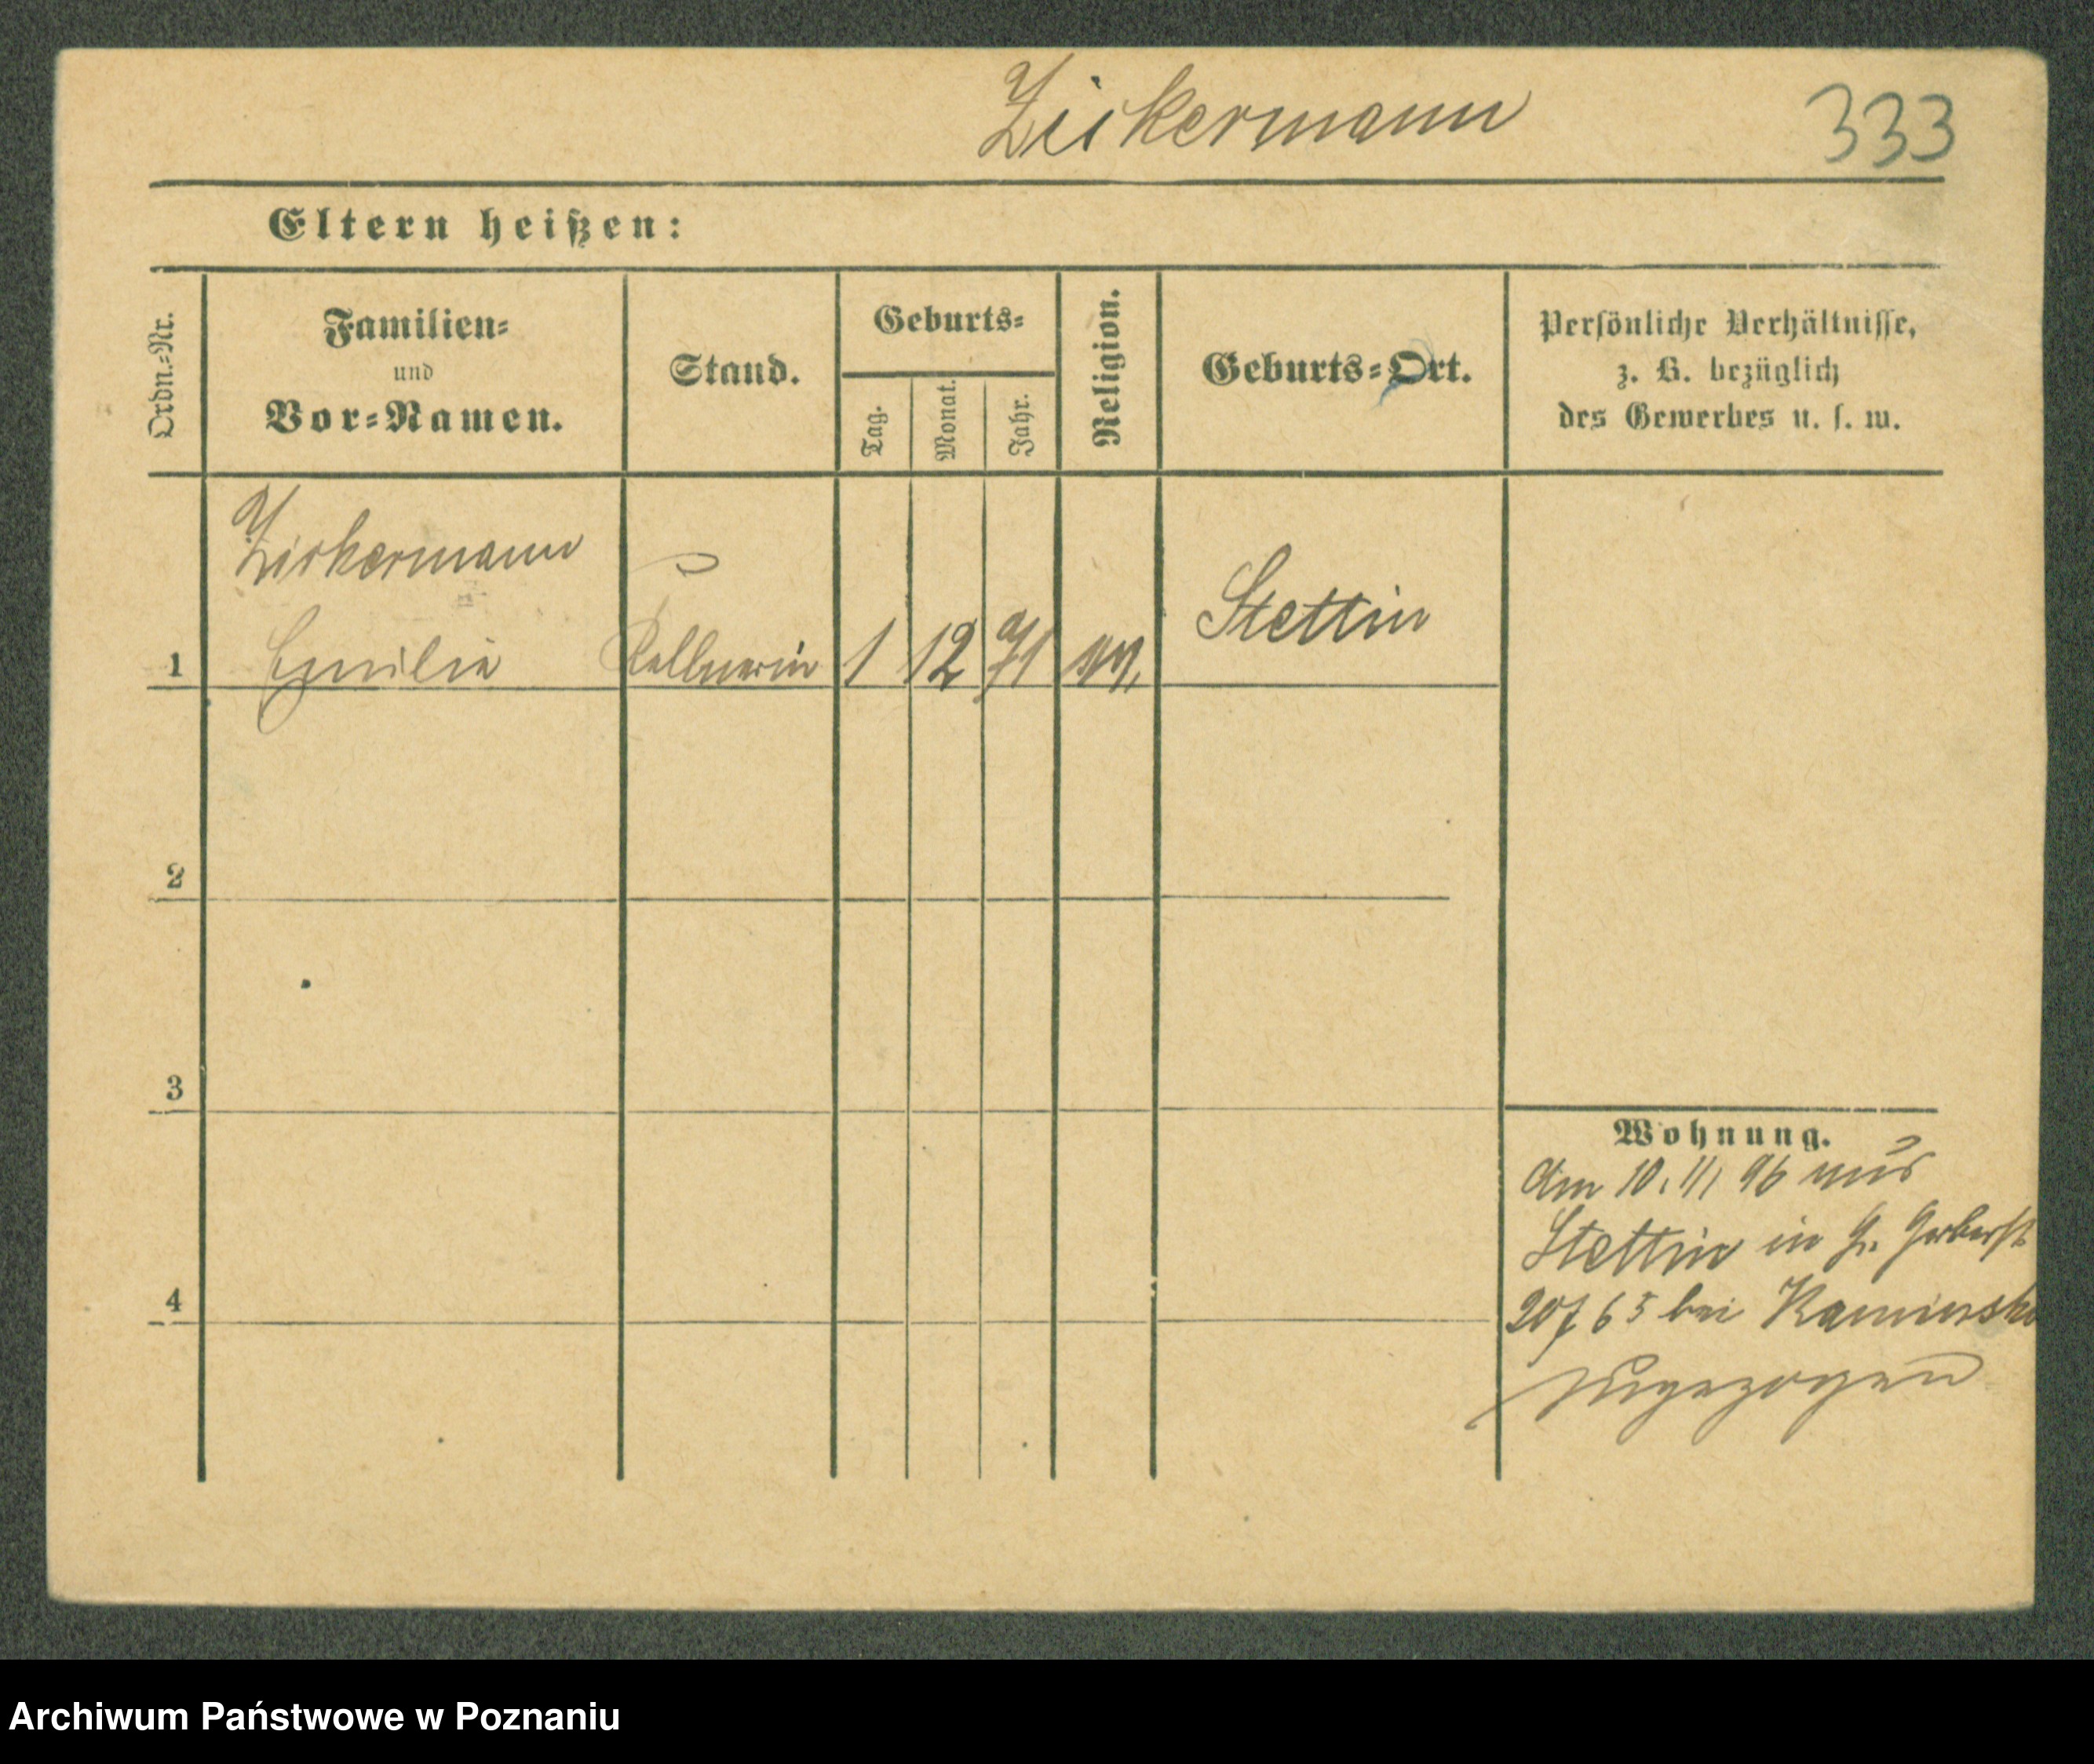 Zickermann
333
Eltern heißen:
Ordn.=Nr.
Familien=
und
Vor=Namen.
Stand.
Geburts=
Tag.
Monat.
Jahr.
Religion.
Geburts=Ort.
Persönliche Verhältnisse,
z. B. bezüglich
des Gewerbes u. s. w.
Zickermann
1 Emilie Kellnerin 1 12 71 Stettin
2
3
4
Wohnung.
Am 10. 11 96 aus
Stettin in Gr. Gerberst
bei Kaminski
zugezogen
Archiwum Państwowe w Poznaniu